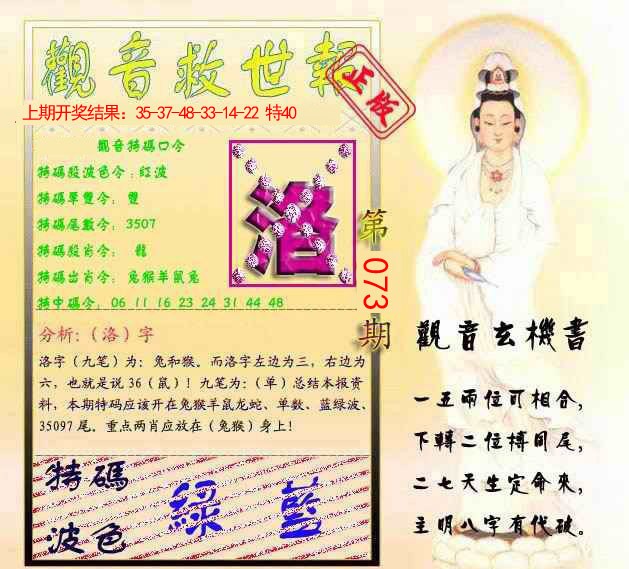 觀音救世報
正版
上期开奖结果：35-37-48-33-14-22 特40
觀音特碼口令
特碼殺波色令：紅波
特碼單雙令： 雙
特碼尾數令： 3507
特碼殺肖令： 龍
特碼出肖令： 兔猴羊鼠兔
特中碼令： 06 11 16 23 24 31 44 48
洛
第073期
分析:（洛）字
洛字（九笔）为: 兔和猴。而洛字左边为三，右边为
六，也就是说36（鼠）！九笔为:（单）总结本报资
料，本期特码应该开在兔猴羊鼠龙蛇、单数、蓝绿波、
35097 尾。重点两肖应放在（兔猴）身上！
特碼
波色
綠 藍
觀音玄機書
一五兩位可相合，
下轉二位博同尾，
二七天生定命來，
主明八字有代破。